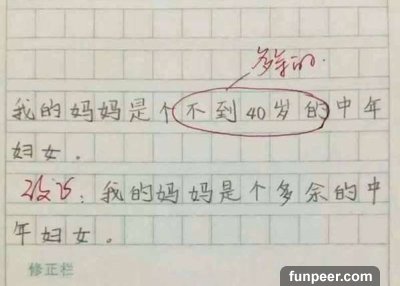 多余的.
我的妈妈是个不到40岁的中年
妇女。
改巧:我的妈妈是个多余的中
年妇女。
修正栏
funpeer.com